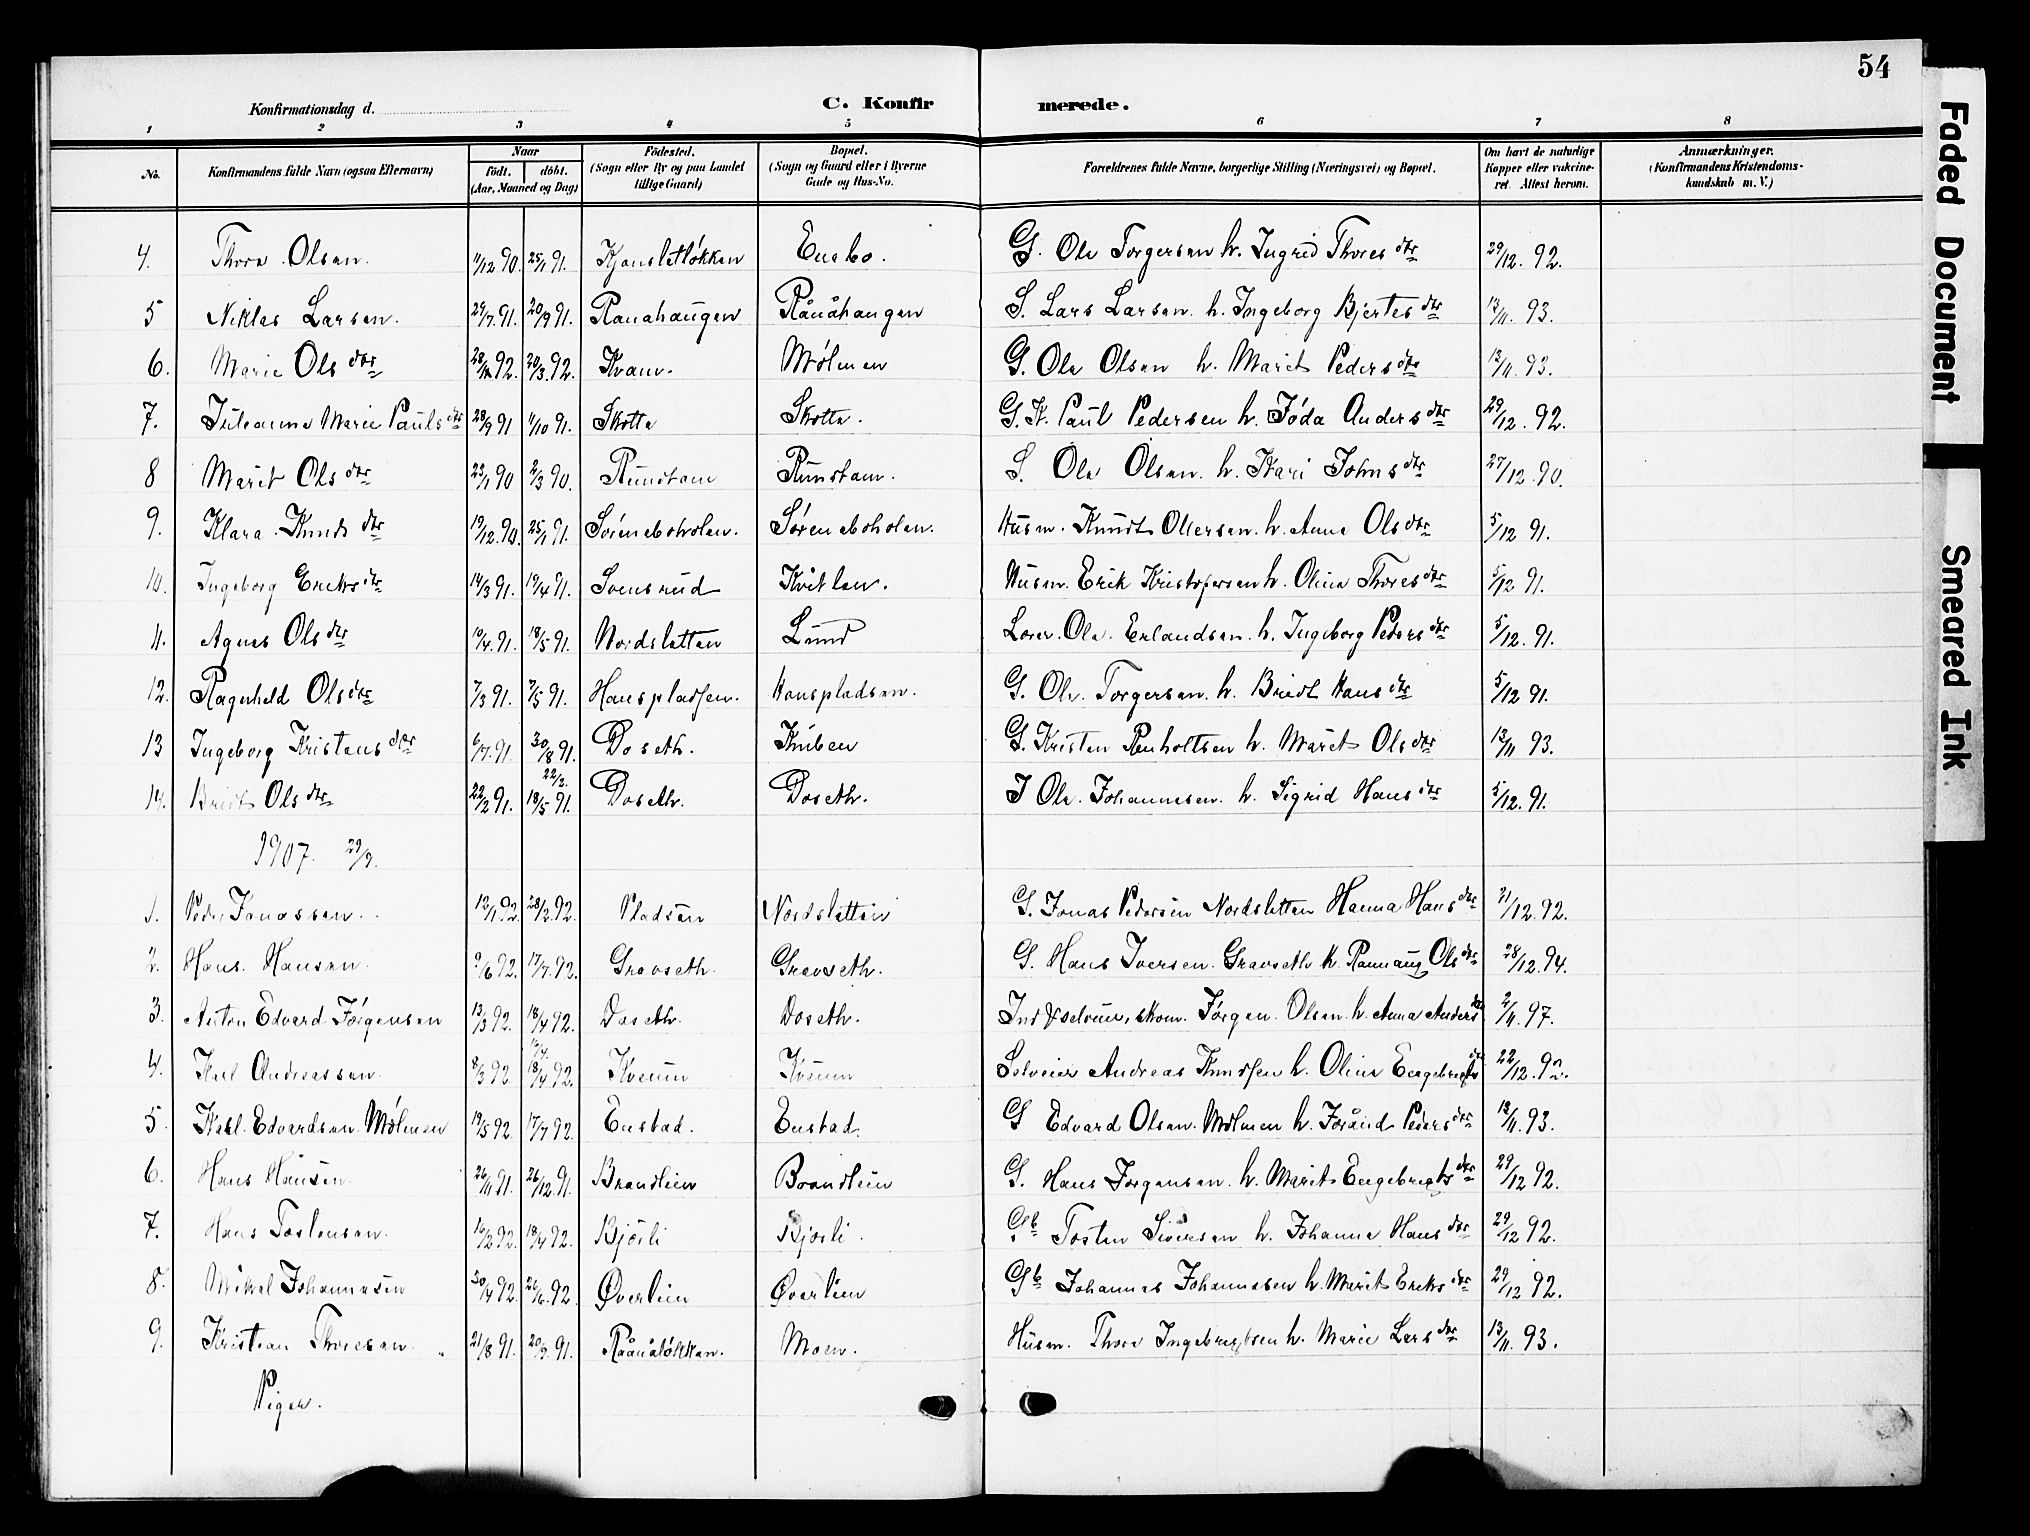 54
Konfirmationsdag d. C. Konfirmerede.
1 2 3 4 5 6 7 8
No. Konfirmandens fulde Navn (ogsaa Efternavn) Naar født. døbt. (Aar, Maaned og Dag) Fødested. (Sogn eller By og paa Landet tillige Gaard) Bopæl. (Sogn og Gaard eller i Byerne Gade og Hus-No. Forældrenes fulde Navne, borgerlige Stilling (Næringsvei) og Bopæl. Om havt de naturlige Kopper eller vaccineret. Attest herom. Anmærkninger. (Konfirmandens Kristendomskundskab m. V.)
4. Thora Olsen. 11/12 90. 25/1 91. Kjønsletløkken Enebo. G. Ole Torgersen h. Ingrid Thoresdtr 29/12. 92.
5 Niklas Larsen. 29/7. 91. 20/9 91. Raanahaugen Råuåhaugen S. Lars Larsen. h. Ingeborg Bjertesdtr 13/11. 93.
6. Marie Olsdtr 92. 20/3. 92. Kvam. Mølmen G. Ole Olsen h. Marit Pedersdtr 13/11. 93.
7. Juleanna Marie Paulsdtr 28/9 91 11/10 91. Skotte Skotte. G. K. Paul Pedersen h. Jøda Andersdtr 29/12. 92.
8 Marit Olsdtr 23/1 90 2/3 90. Rundtom Runstom. S. Ole Olsen. h. Kari Johnsdtr 27/12. 90.
9. Klara Knudsdtr 19/12. 90. 25/1 91. Søreneboholen. Søreneboholen. Husm. Knudt Ollersen. h. Anne Olsdtr 5/12 91.
10. Ingeborg Ereksdtr 14/3 91. 19/4 91. Svensrud Kvitlen. Husm. Erik Kristofersen h. Olina Thoresdtr 5/12 91.
11. Agnes Olsdtr 10/4. 91. 18/5 91. Nordsletten Lund Lærer. Ole. Erlandsen. h. Ingeborg Pedersdtr 5/12. 91.
12. Ragnhild Olsdtr 7/3 91. 7/5 91. Hansplassen. Hanspladsen. G. Ole. Torgersen. h. Bredt Hansdtr 5/12 91.
13 Ingeborg Kristensdtr 6/7. 91 30/8 91. Doseth. Kniben G. Kristen Renholtsen h. Marit Olsdtr 13/11 93.
14. Bredt Olsdtr 22/2 91. 22/3. 18/5 91. Doseth. Doseth. J Ole. Johannesen. h. Sigrid Hansdtr 5/12. 91.
1907. 29/9.
1. Peder Jonassen. 12/1 92. 28/2. 92. Pladsen Nordsletten G. Jonas Pedersen Nordsletten Hanna Hansdtr 21/12. 92.
2. Hans Hansen 9/6 92. 17/7. 92. Gravseth. Gravseth. G. Hans Iversen. Gravseth h. Rannaug Olsdtr 28/12. 94.
3. Anton Edvard Jørgensen 13/3 92. 18/4 92. Doseth. Doseth. Ind & selveier, skom. Jørgen. Olsen. h. Anna Andersdtr 2/11. 97.
4. Karl Andreassen 8/3 92 18/4 92. Kverum Kverum Selveier Andreas Knudsen h. Olina Engebregtsdtr 22/12. 92.
5. Karl. Edvardsen. Mølmen 19/5 92. 17/7 92. Enstad. Enstad. G Edvard Olsen. Mølmen h. Jørånd Pedersdtr 13/11. 93.
6. Hans Hansen. 26/11 91. 26/12. 91. Brandlien Brandlien G. Hans Jørgensen. h. Marit Engebregtsdtr 29/12 92.
7. Hans Tostensen. 16/2 92. 18/4 92. Bjørli Bjorli. Gb Tosten Siversen h. Johanna Hansdtr 29/12 92.
8. Mikal Johannesen 30/4 92. 26/6. 92. Øverlien Øverlien Gb Johannes Johannessen h. Marit Ereksdtr 29/12 92.
9. Kristian Thoresen. 21/8 91. 20/9. 91. Råånåløkken. Moen. Husm. Thore Ingebregtsen h. Marie Larsdtr 13/11. 93.
Piger.
Faded Document
Smeared Ink.